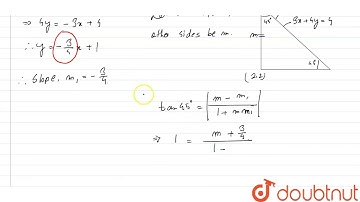 ⇒ 4y = -3x + 4
∴ y = -3/4 x + 1
∴ Slope, m₁ = -3/4
other sides be m.
m
45°
3x+4y=4
45°
(2,2)
tan 45° = | m - m₁ / 1 + mm₁ |
⇒ 1 = m + 3/4 / 1 -
doubtnut